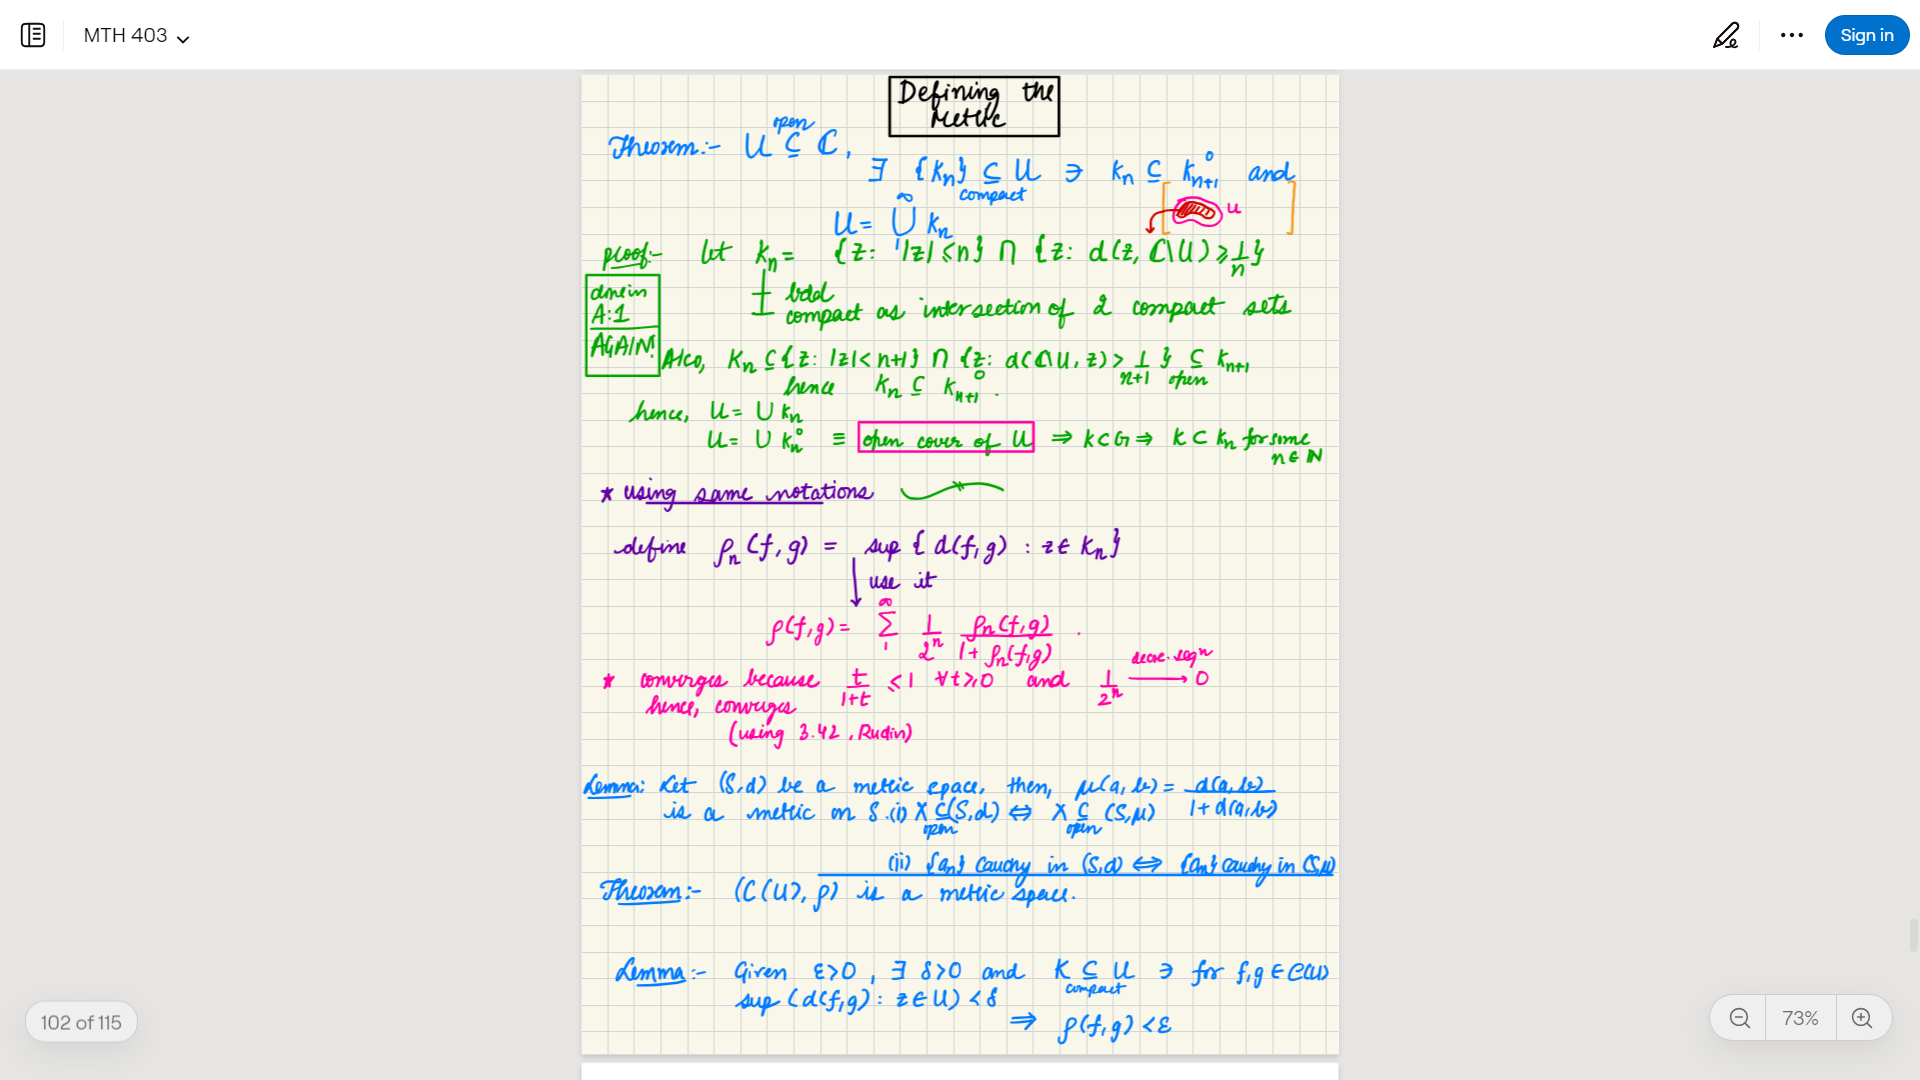 MTH 403
Sign in
Defining the
Metric
Theorem:- U ⊆ ℂ,
open
∃ {Kn} ⊆ U ∋ Kn ⊆ K°n+1 and
compact
U
U = ∞⋃1 Kn
proof:- let Kn = {z: |z| ≤ n} ∩ {z: d(z, ℂ\U) ≥ 1/n}
bdd
compact as intersection of 2 compact sets
done in
A:1
AGAIN!
Also, Kn ⊆ {z: |z| < n+1} ∩ {z: d(ℂ\U, z) > 1/n+1} ⊆ Kn+1
open
hence Kn ⊆ K°n+1.
hence, U = ∪ Kn
U = ∪ K°n ≡ open cover of U ⇒ K⊂G ⇒ K ⊂ Kn for some
n ∈ ℕ
★ using same notations
define ρn(f,g) = sup { d(f,g) : z ∈ Kn}
use it
ρ(f,g) = ∞∑1 1/2ⁿ ρn(f,g)/1+ρn(f,g) .
★ converges because t/1+t ≤ 1 ∀t≥0 and 1/2ⁿ → 0
decre. seqn
hence, converges
(using 3.42, Rudin)
Lemma: Let (S,d) be a metric space, then, μ(a,b) = d(a,b)/1+d(a,b)
is a metric on S. (i) X ⊆ (S,d) ⇔ X ⊆ (S,μ)
open open
(ii) {an} Cauchy in (S,d) ⇔ {an} Cauchy in (S,μ)
Theorem:- (C(U), ρ) is a metric space.
Lemma:- Given ε>0, ∃ δ>0 and K ⊆ U ∋ for f,g ∈ C(U)
compact
sup (d(f,g): z∈U) < δ
⇒ ρ(f,g) < ε
102 of 115
73%